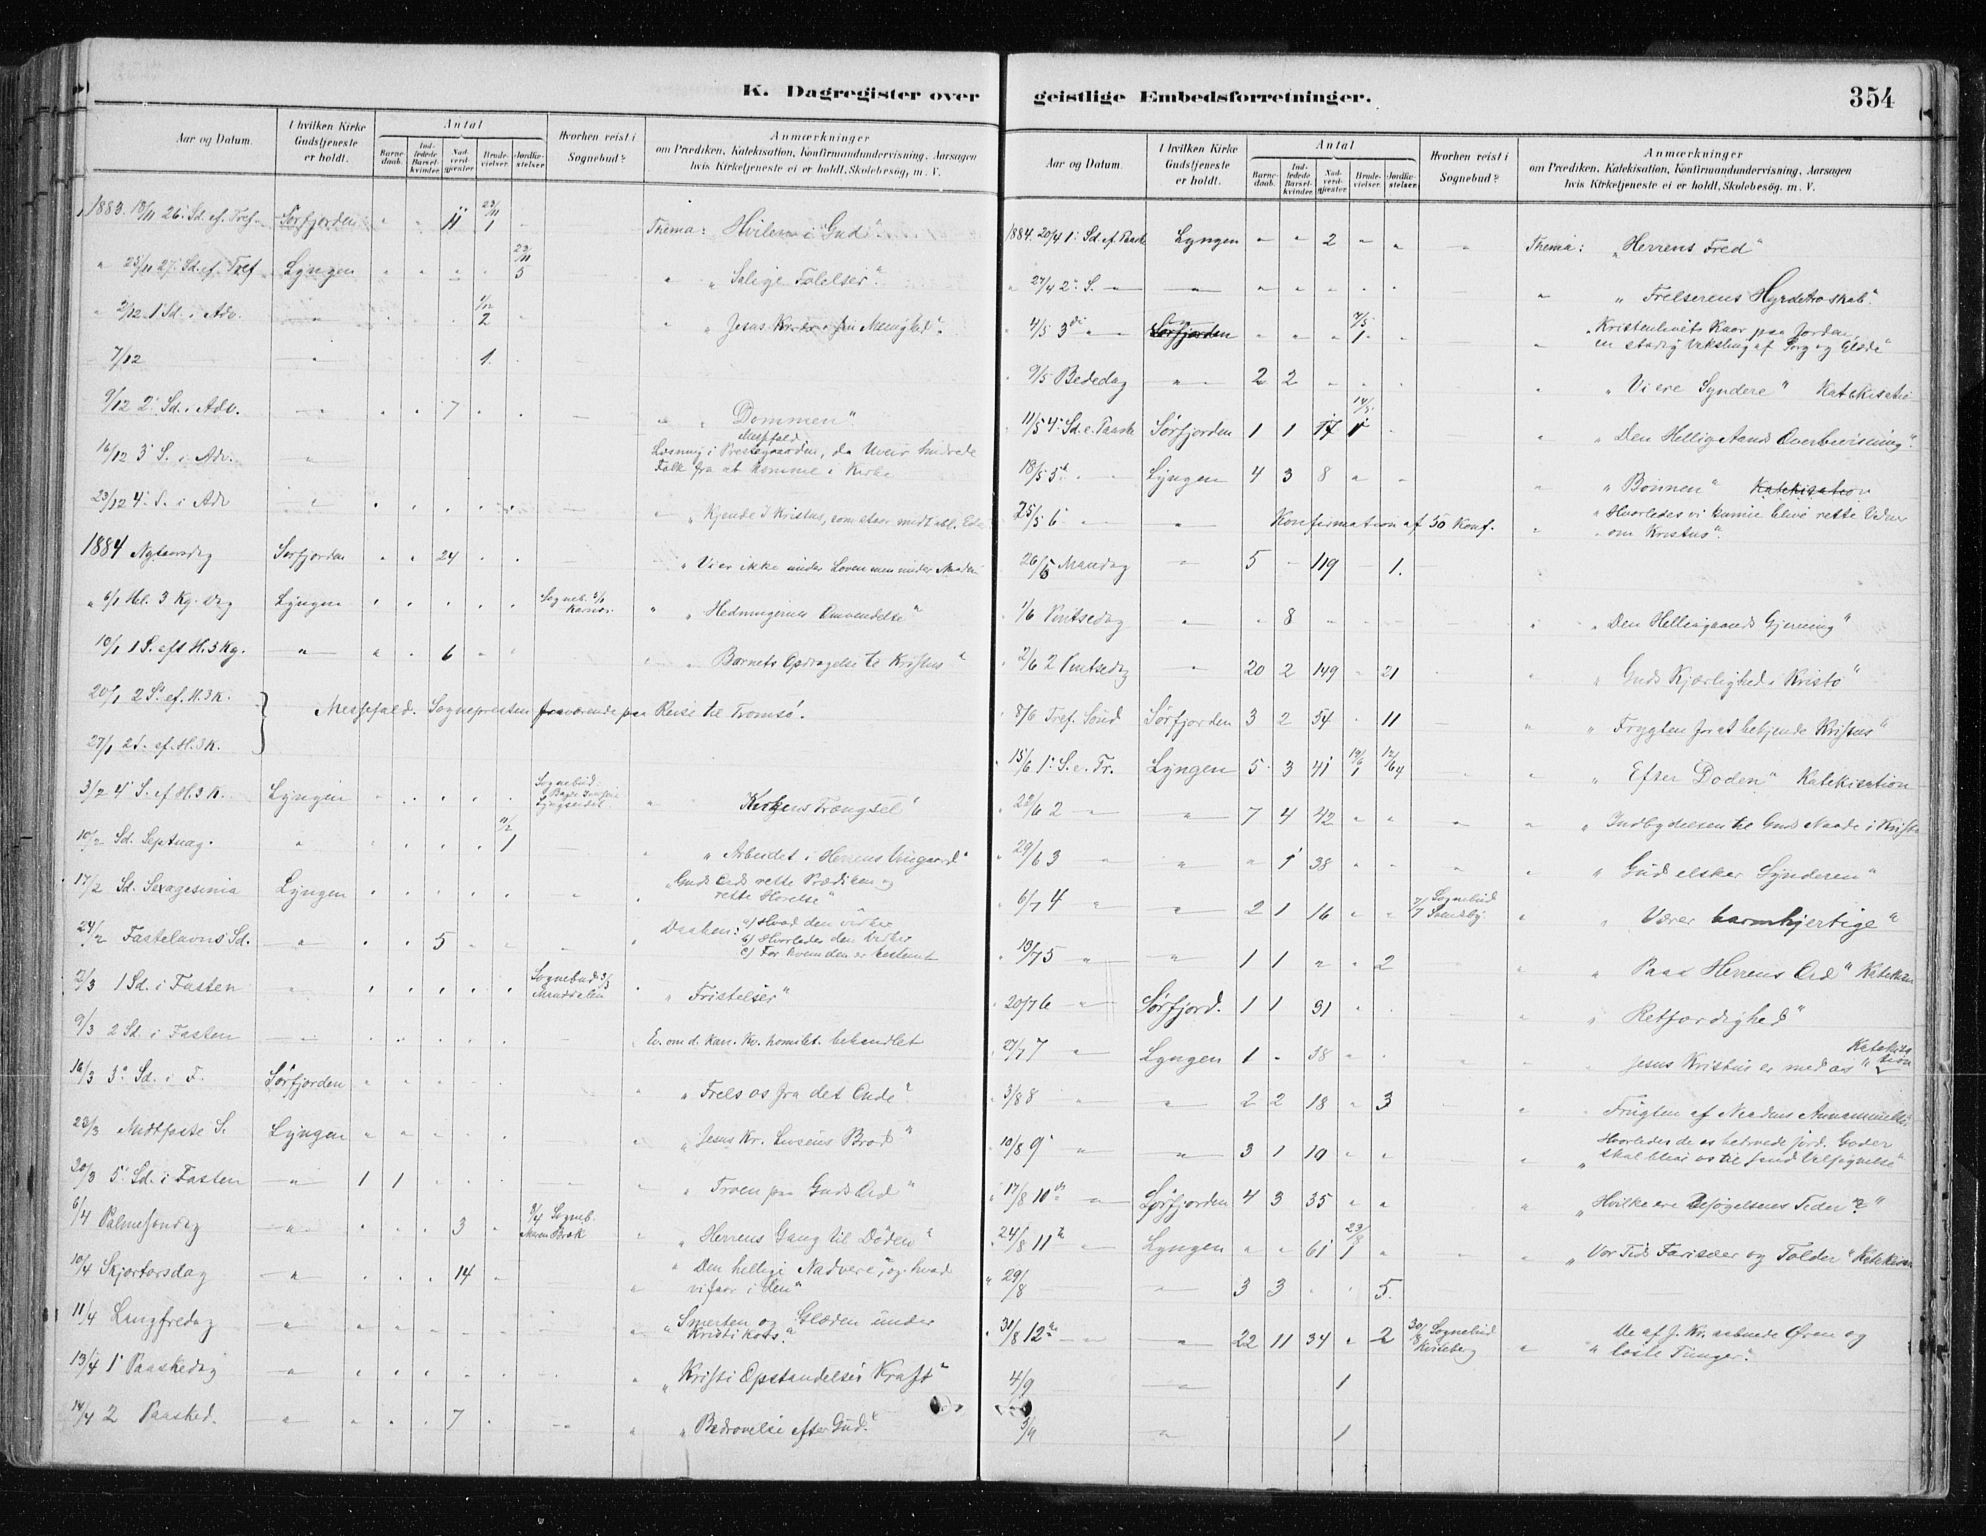 K. Dagregister over
geistlige Embedsforretninger.
354
Aar og Datum.
I hvilken Kirke Gudstjeneste er holdt.
Antal
Barnedaab.
Indledede Barselkvinder.
Nadverdgjester.
Brudevielser.
Jordfæstelser.
Hvorhen reist i Sognebud?
Anmærkninger
om Prædiken, Katekisation, Konfirmandundervisning, Aarsagen
hvis Kirketjeneste ei er holdt, Skolebesøg, m. V.
1883. 18/11 26' Sd. ef. Tref. Sørfjorden " " 11 23/11 1 Thema: Hvilen i Gud"
" 25/11 27' Sd. ef. Tref Lyngen " " " " 23/11 5 " "Salige Følelser"
" 2/12 1' Sd. i Adv. " 1/12 2 " "Jesus Kr. i sin Menighed".
7/12 " 1.
9/12 2' Sd. i Adv. " " " 7 " "Dommen"
16/12 3' S. i Adv. " Messfald. Læsning i Prestegaarden, da Uveir hindrede
Folk fra at komme i Kirke
23/12 4' S. i Adv " "Kjende I Kristus, som staar midt ibl. Eder
1884 Nytaarsdag Sørfjorden " " 24 " " "Vi er ikke under Loven men under Naaden
" 6/1 Hel. 3 Kg. Dag Lyngen Sogneb. Karnes. " "Hedningernes Omvendelse"
13/1 1 S. eft H. 3 Kg. " " 6 " " "Barnets Opdragelse til Kristus"
20/1 2 S. ef. H. 3 K. Messefald. Sognepresten fraværende paa Reise til Tromsø.
27/1 S. ef. H. 3 K.
3/2 4' S. ef H. 3 K. Lyngen Sognebud Lyngseidet " Kirkens Trængsel"
10/2 Sd. Septuag. " 11/2 1 " "Arbeidet i Herrens Vingaard"
17/2 Sd. Sexagesima Lyngen "Guds Ords rette Prædiken og
rette Hørelse"
24/2 Fastelavns Sd. " " " 5 " Daaben: a) Hvad den virker
b) Hvorledes den virker
c) For hvem den er bestemt
2/3 1 Sd. i Fasten " Sognebud 3/3 Manddalen "Fristelser"
9/3 2 Sd. i Fasten " Ev. om d. kan. Kv. homilet. behandlet
16/3 3' Sd. i F. Sørfjorden "Frels os fra det Onde"
23/3 Midtfaste S. Lyngen "Jesus Kr. Livsens Brød"
30/3 5' Sd. i Fasten " 1 1 "Troen paa Guds Ord"
6/4 Palmesøndag " " " 3 " 9/4 Sogneb. " "Herrens Gang til Døden"
10/4 Skjertorsdag " " " 14 " "Den hellige Nadvere", og hvad
vi faar i den"
11/4 Langfredag " "Smerten og Glæden under
Kristi kors"
13/4 1' Paaskedag " "Kristi Opstandelses Kraft"
14/4 2 Paasked. " " " 7 " "Bedrøvelse efter Gud."
Aar og Datum.
I hvilken Kirke Gudstjeneste er holdt.
Antal
Barnedaab.
Indledede Barselkvinder.
Nadverdgjester.
Brudevielser.
Jordfæstelser.
Hvorhen reist i Sognebud?
Anmærkninger
om Prædiken, Katekisation, Konfirmandundervisning, Aarsagen
hvis Kirketjeneste ei er holdt, Skolebesøg, m. V.
1884. 20/4 1' Sd. ef. Paaske Lyngen " " 2 " " Thema: "Herrens Fred"
" 27/4 2' S. " "Frelserens Hyrdetroskab".
" 4/5 3die " Sørfjorden 7/5 1 "Kristenlivets Kaar paa Jorden
en stadig Veksling af Sorg og Glæde"
9/5 Bededag " 2 2 "Vi ere Syndere" Katekisation
11/5 4' Sd. e. Paaske Sørfjorden 1 1 17 14/5 1 "Den Hellig Aands Overbevisning".
18/5 5' Lyngen 4 3 8 "Bønnen" Katekisation
25/5 6' " Konfirmation af 50 Konf. "Hvorledes vi kunne blive rette Vidner
om Kristus".
26/5 Mandag " 5 - 119 - 1.
1/6 Pintsedag " " 8 "Den Helligaands Gjerning"
2/6 2 Pintsedag " 20 2 149 " 21 "Guds Kjærlighed i Kristo"
8/6 Tref. Sønd Sørfjorden 3 2 54 " 11 "Frygten for at bekjende Kristus"
15/6 1' S. e. Tr. Lyngen 5 3 41 19/6 1 12/6 4 "Efter Døden" Katekisation
22/6 2 " " 7 4 42 " " "Indbydelsen til Guds Naade i Kristo
29/6 3 " " " 1 38 "Gud elsker Synderen"
6/7 4 " " 2 1 16 " " 7/7 Sognebud Svensby "Værer barmhjertige"
13/7 5 " " 1 1 " " 2 "Paa Herrens Ord" Katekisa
20/7 6 " Sørfjord. 1 1 31 "Retfærdighed"
27/7 7 " Lyngen 1 - 38 "Jesus Kristus er med os" Katekisation
3/8 8 " " 2 2 18 " 3 "Frugten af Naadens Annammelse
10/8 9' " 3 1 10 " " "Hvorledes de os betroede jord. Goder
skal blive os til sand Velsignelse"
17/8 10de " Sørfjorden 4 3 35 " " "Hvilke ere Besøgelsens Tider?"
24/8 11te " Lyngen " " 61 23/8 1 "Vor Tids Farisæer og Tolder" Katekisa
" 29/8 " 3 3 " " 5.
31/8 12te " " 22 11 34 " 2 30/8 Sognebud Kviteberg "De af J. Kr. aabnede Øren og
løste Tunger".
4/9 " 1
5/9 " 1